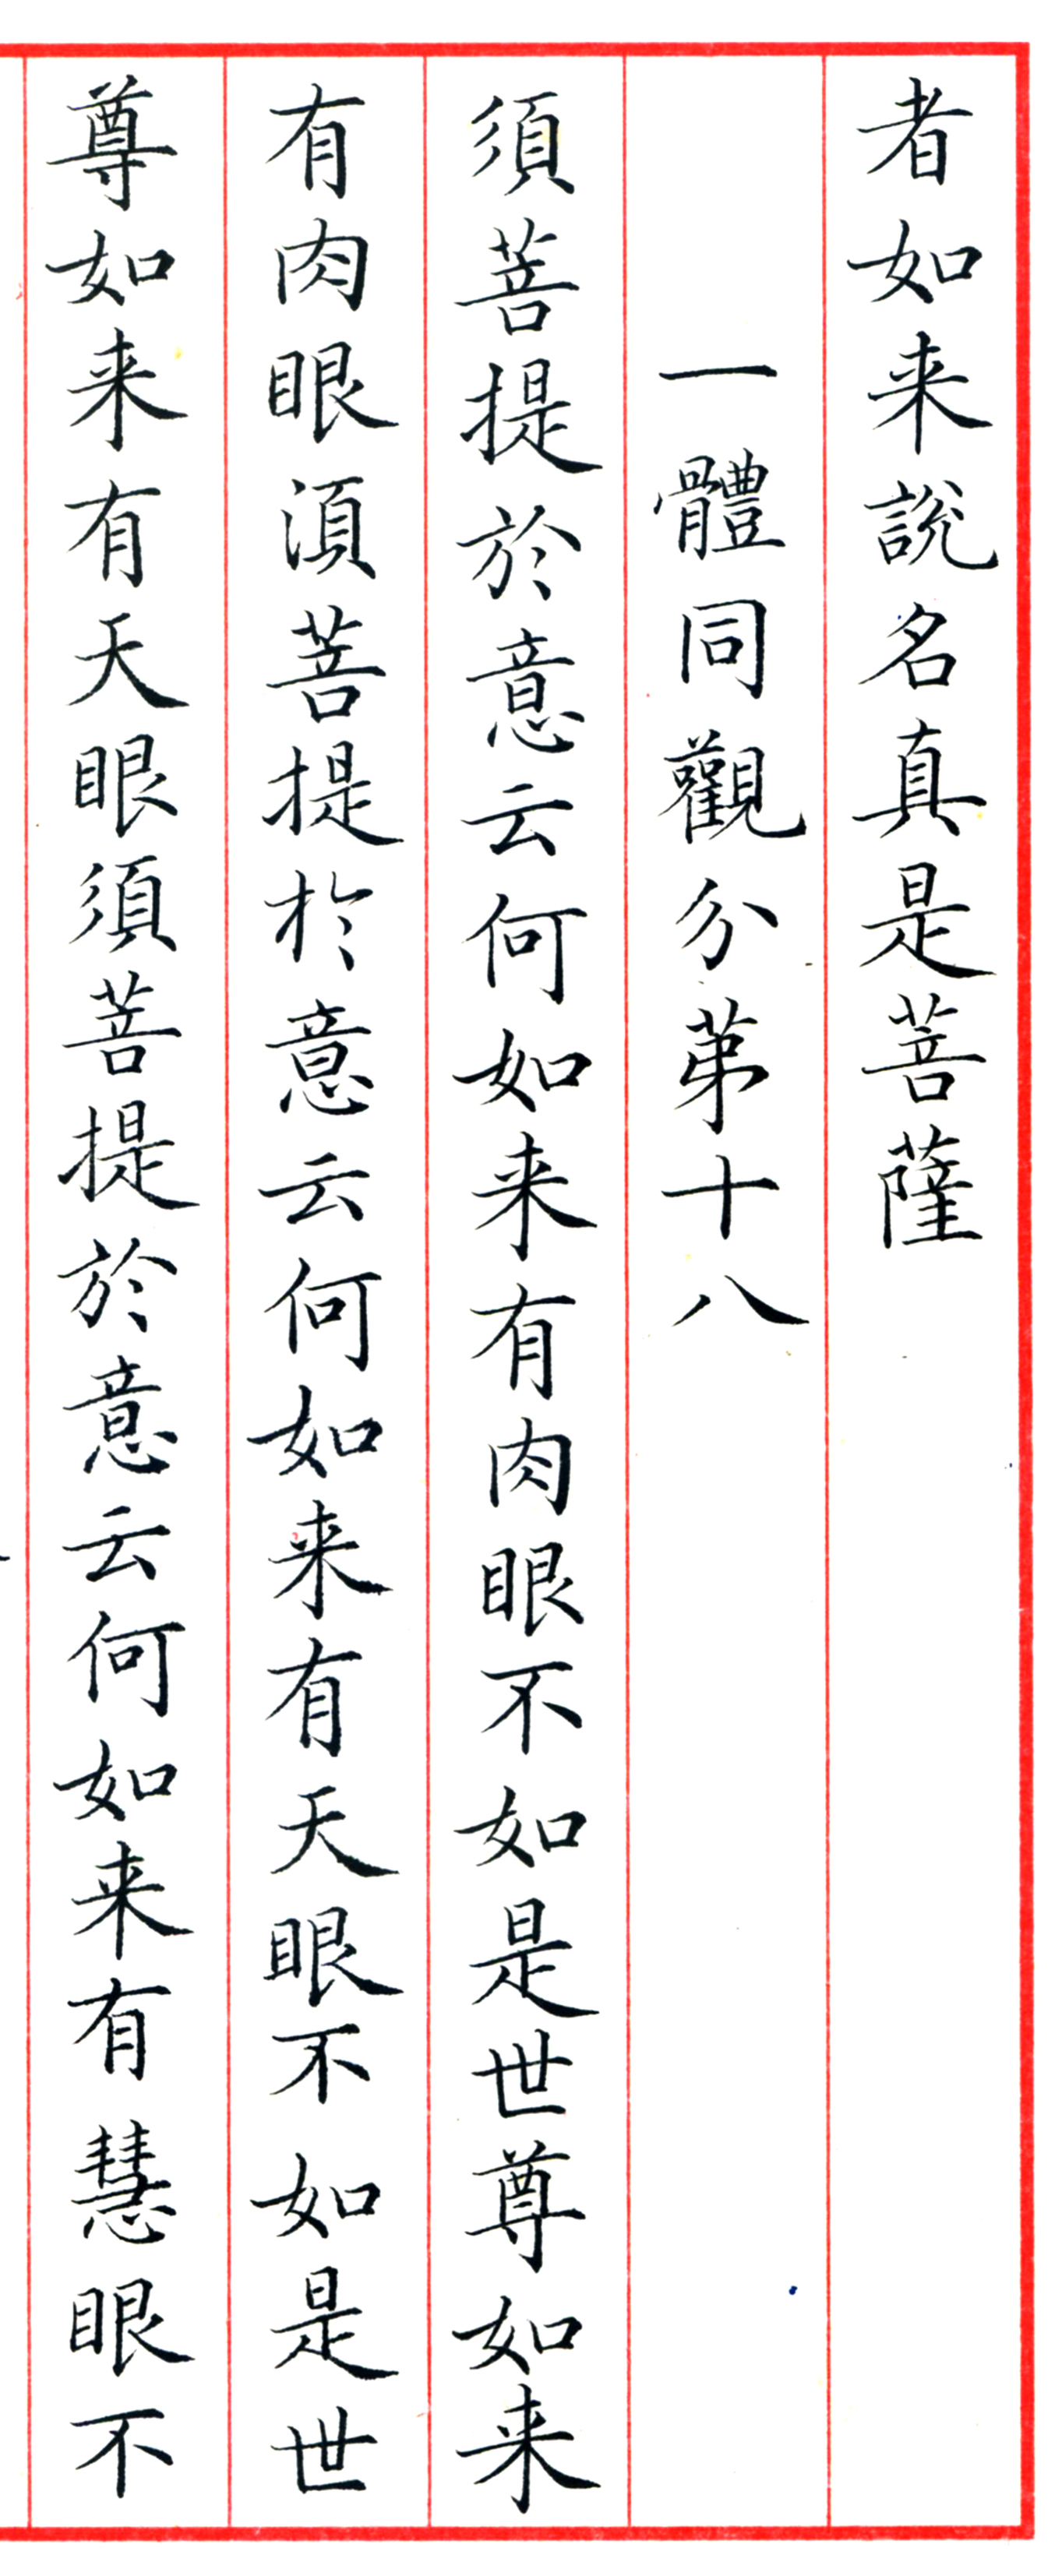 者如来說名真是菩薩
一體同觀分苐十八
須菩提於意云何如来有肉眼不如是世尊如来
有肉眼湏菩提扵意云何如来有天眼不如是世
尊如来有天眼須菩提於意云何如来有慧眼不